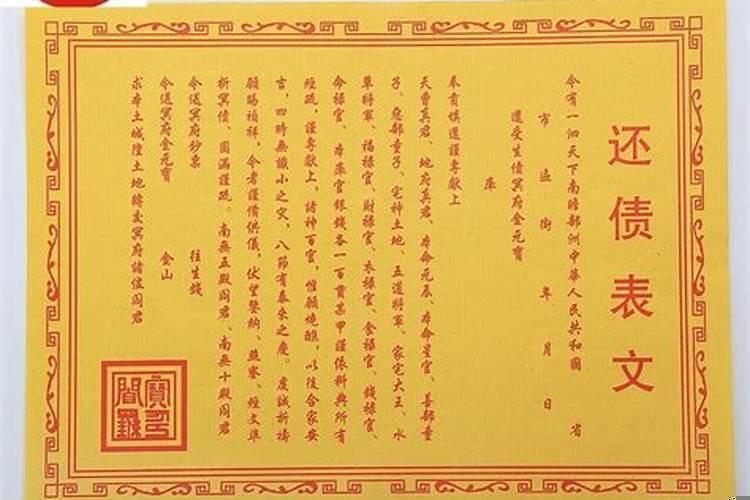 还债表文
今有一泗天下南瞻部洲中華人民共和國 省
市 區 街 年 月 日
還受生債冥府金元寶
庫
奉育填還謹專獻上
天曹真君、地府真君、本命元辰、本命星官、善部童
子、惡部童子、宅神土地、五道將軍、家宅大王、水
草將軍、福祿官、財祿官、衣祿官、食祿官、錢祿官、
命祿官、本庫官銀錢各一百貫某甲謹依科典所有
經疏，謹專獻上，諸神百官，惟願燒醮，以後合家安
吉，四時無識小之災，八節有泰來之慶。虔誠祈禱
願賜禎祥，今者謹備供儀，伏望鑒納、照察、經文準
折冥債、圓滿謹疏。南無五殿閻君、南無十殿閻君
令送冥府鈔票 往生錢
令送冥府金元寶 金山
求本土城隍土地轉交冥府諸位閻君